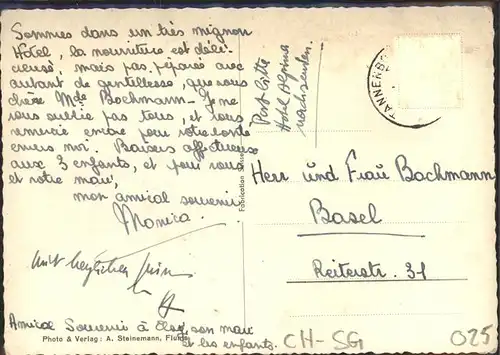 Sommes dans un très mignon
Hotel, la nourriture est déli-
cieuse, mais pas
autant de gentillesse, que vous
chère Mde Bachmann - Je ne
vous oublie pas tous, et vous
remercie encore pour votre bonté
envers moi. Baisers affectueux
aux 3 enfants, et pour vous
et votre mari,
mon amical souvenir
Monica.
mit herzlichen
Amical Souvenir à son mari
et les enfants.
Photo & Verlag: A. Steinemann,
Fabrication
Post bitte
Hotel Alpina
nachsenden.
TANNENBO
Herr und Frau Bachmann
Basel
Reiterstr. 31
CH-SG
025